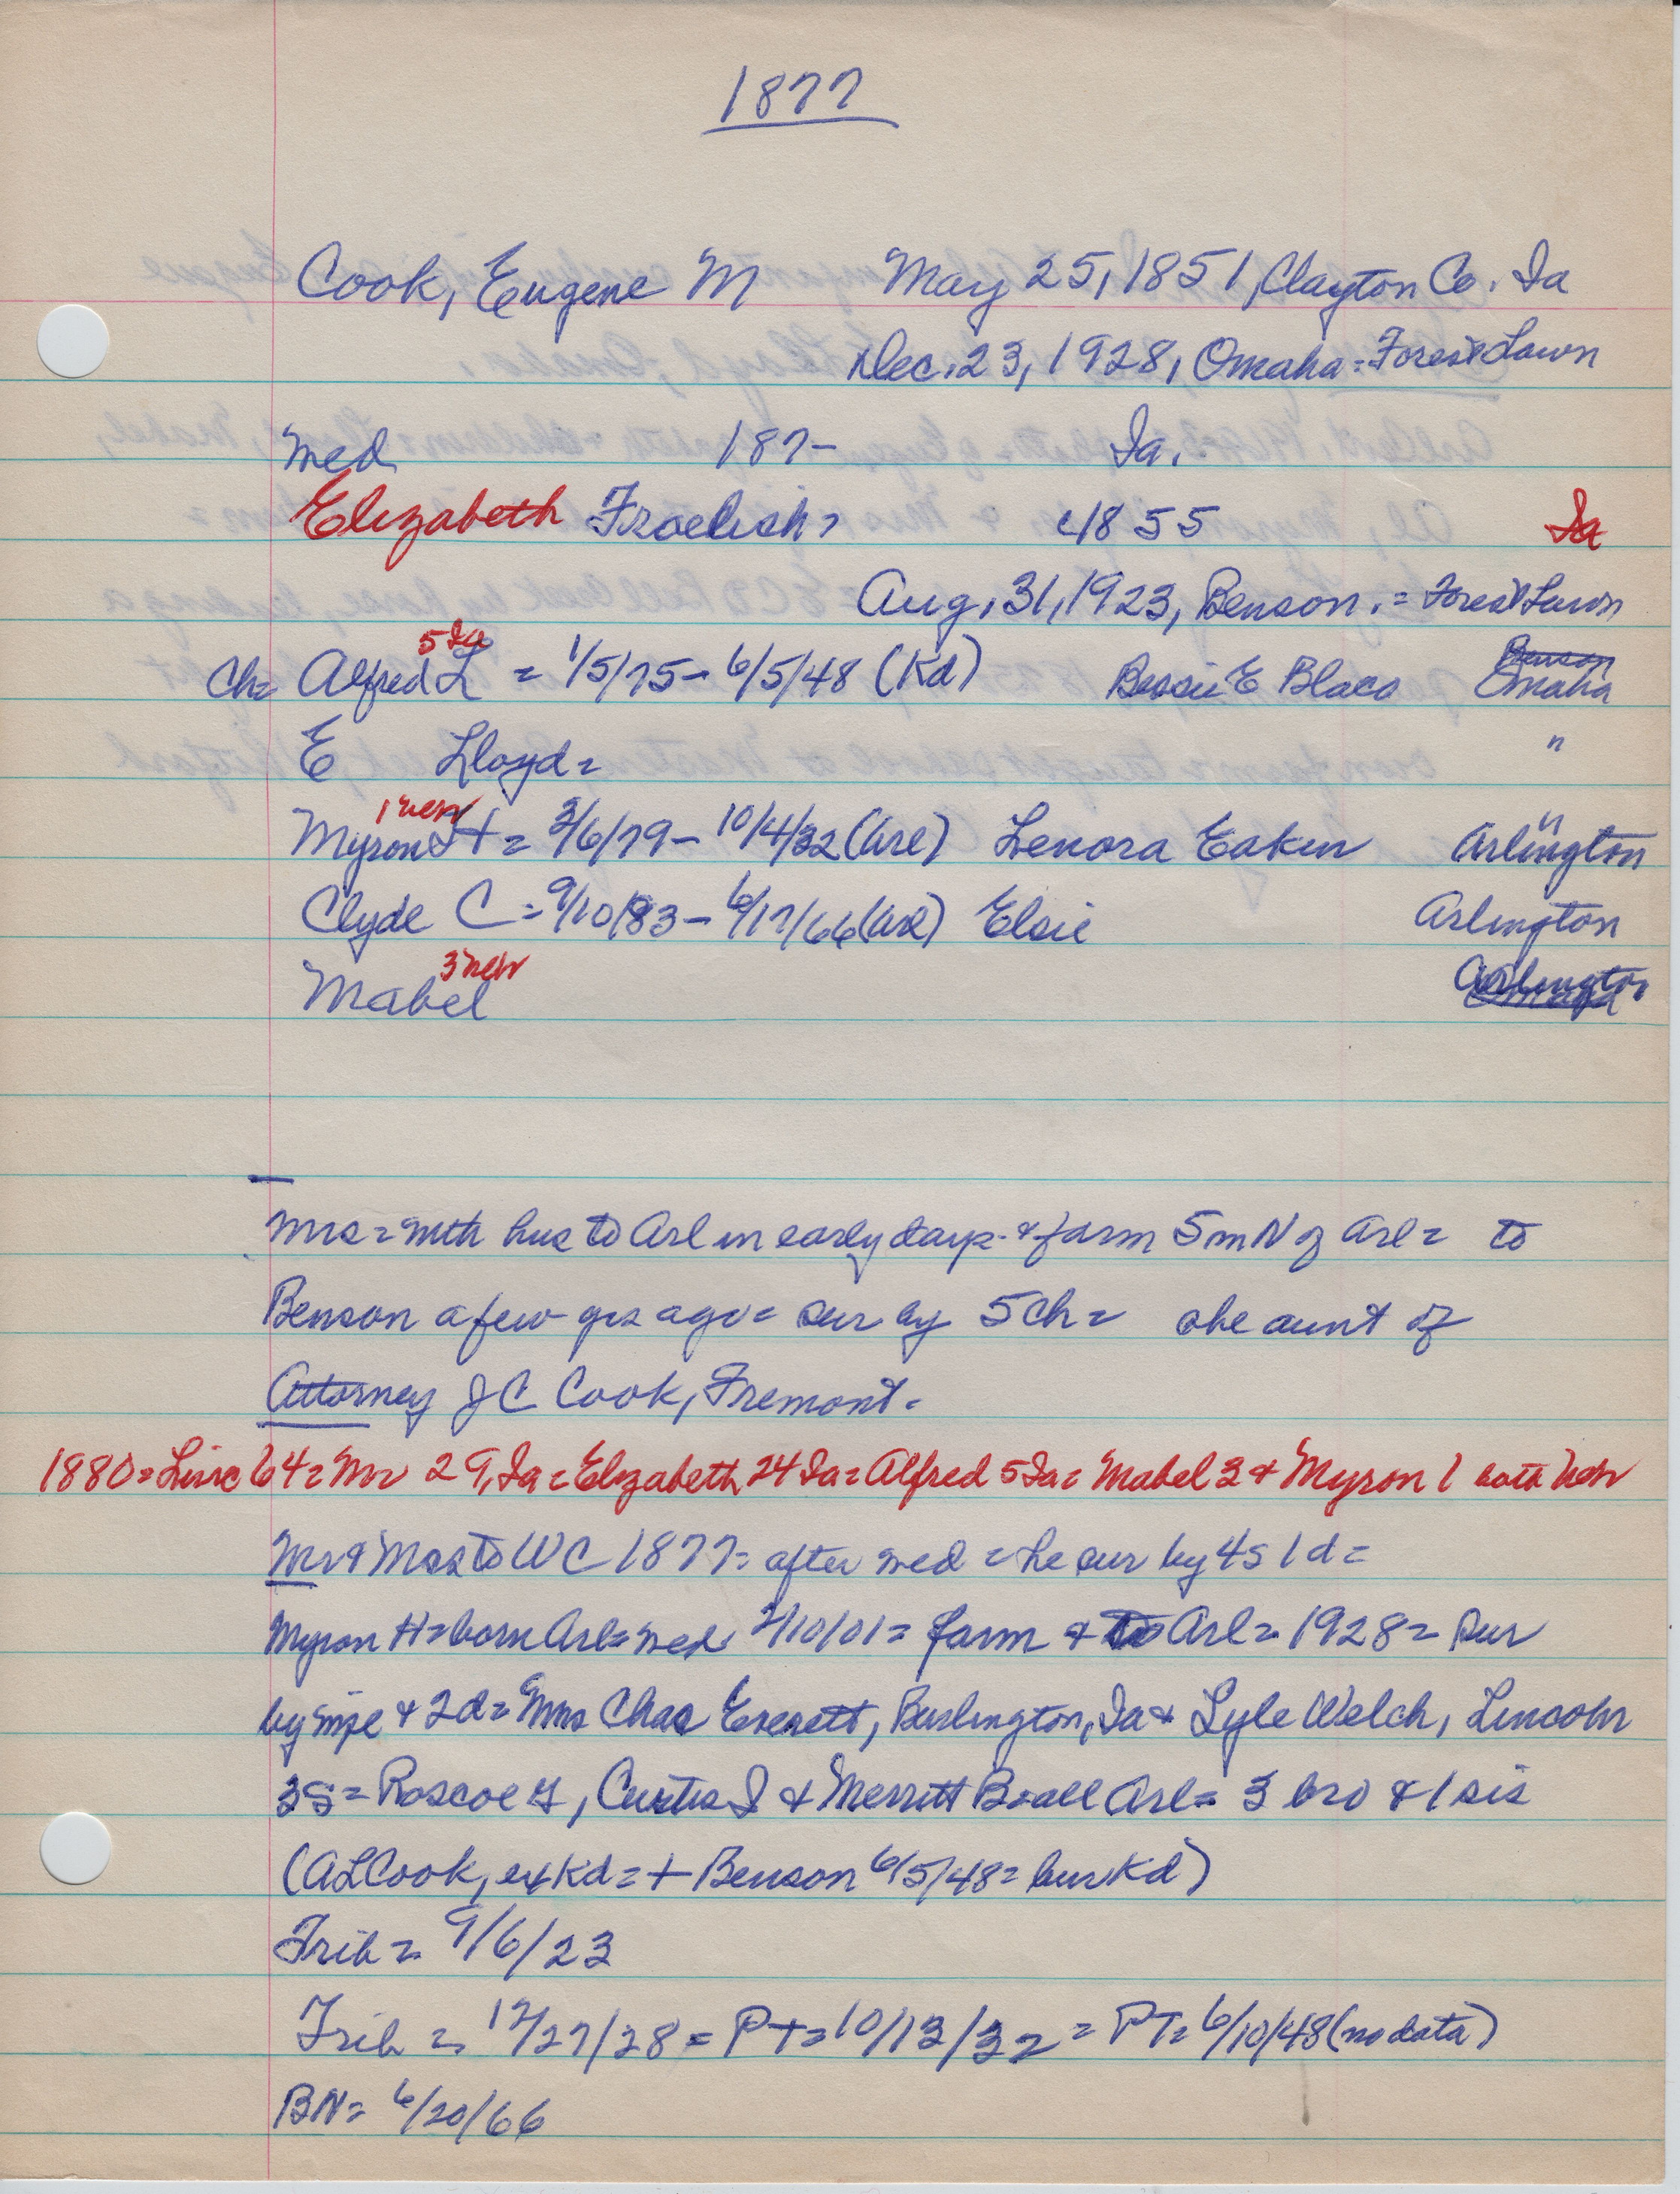 1877
Cook, Eugene M May 25, 1851, Clayton Co. Ia
Dec. 23, 1928, Omaha = Forest Lawn
med 187- Ia.
Elizabeth Froelich = c1855 Ia
Aug. 31, 1923, Benson. = Forest Lawn
5 Ia Benson
Ch = Alfred L = 1/5/75 - 6/5/48 (Kd) Bessie E Blaco Omaha
E Lloyd = "
1 Neb "
Myron H = 3/6/79 - 10/4/32 (Arl) Lenora Eakin Arlington
Clyde C = 9/10/83 - 6/17/66 (Arl) Elsie Arlington
3 Neb
Mabel Arlington
Mrs = with hus to Arl in early days - & farm 5 m N of Arl = to
Benson a few yrs ago = sur by 5 ch = she aunt of
Attorney J C Cook, Fremont.
1880 = Linc 64 = Mr 29, Ia = Elizabeth 24 Ia = Alfred 5 Ia = Mabel 3 & Myron 1 both Neb
Mr & Mrs to WC 1877 = after med = he sur by 4 s 1 d =
Myron H = born Arl = med 2/10/01 = farm & to Arl = 1928 = sur
by wife & 2d = Mrs Chas Everett, Burlington, Ia & Lyle Welch, Lincoln
3s = Roscoe, Curtis & Merritt B = all Arl = 3 bro & 1 sis
(AL Cook, ex Kd = + Benson 6/5/48 = bur Kd)
Trib = 9/6/23
Trib = 12/27/28 = PT = 10/13/32 = PT = 6/10/48 (no data)
BN = 6/20/66